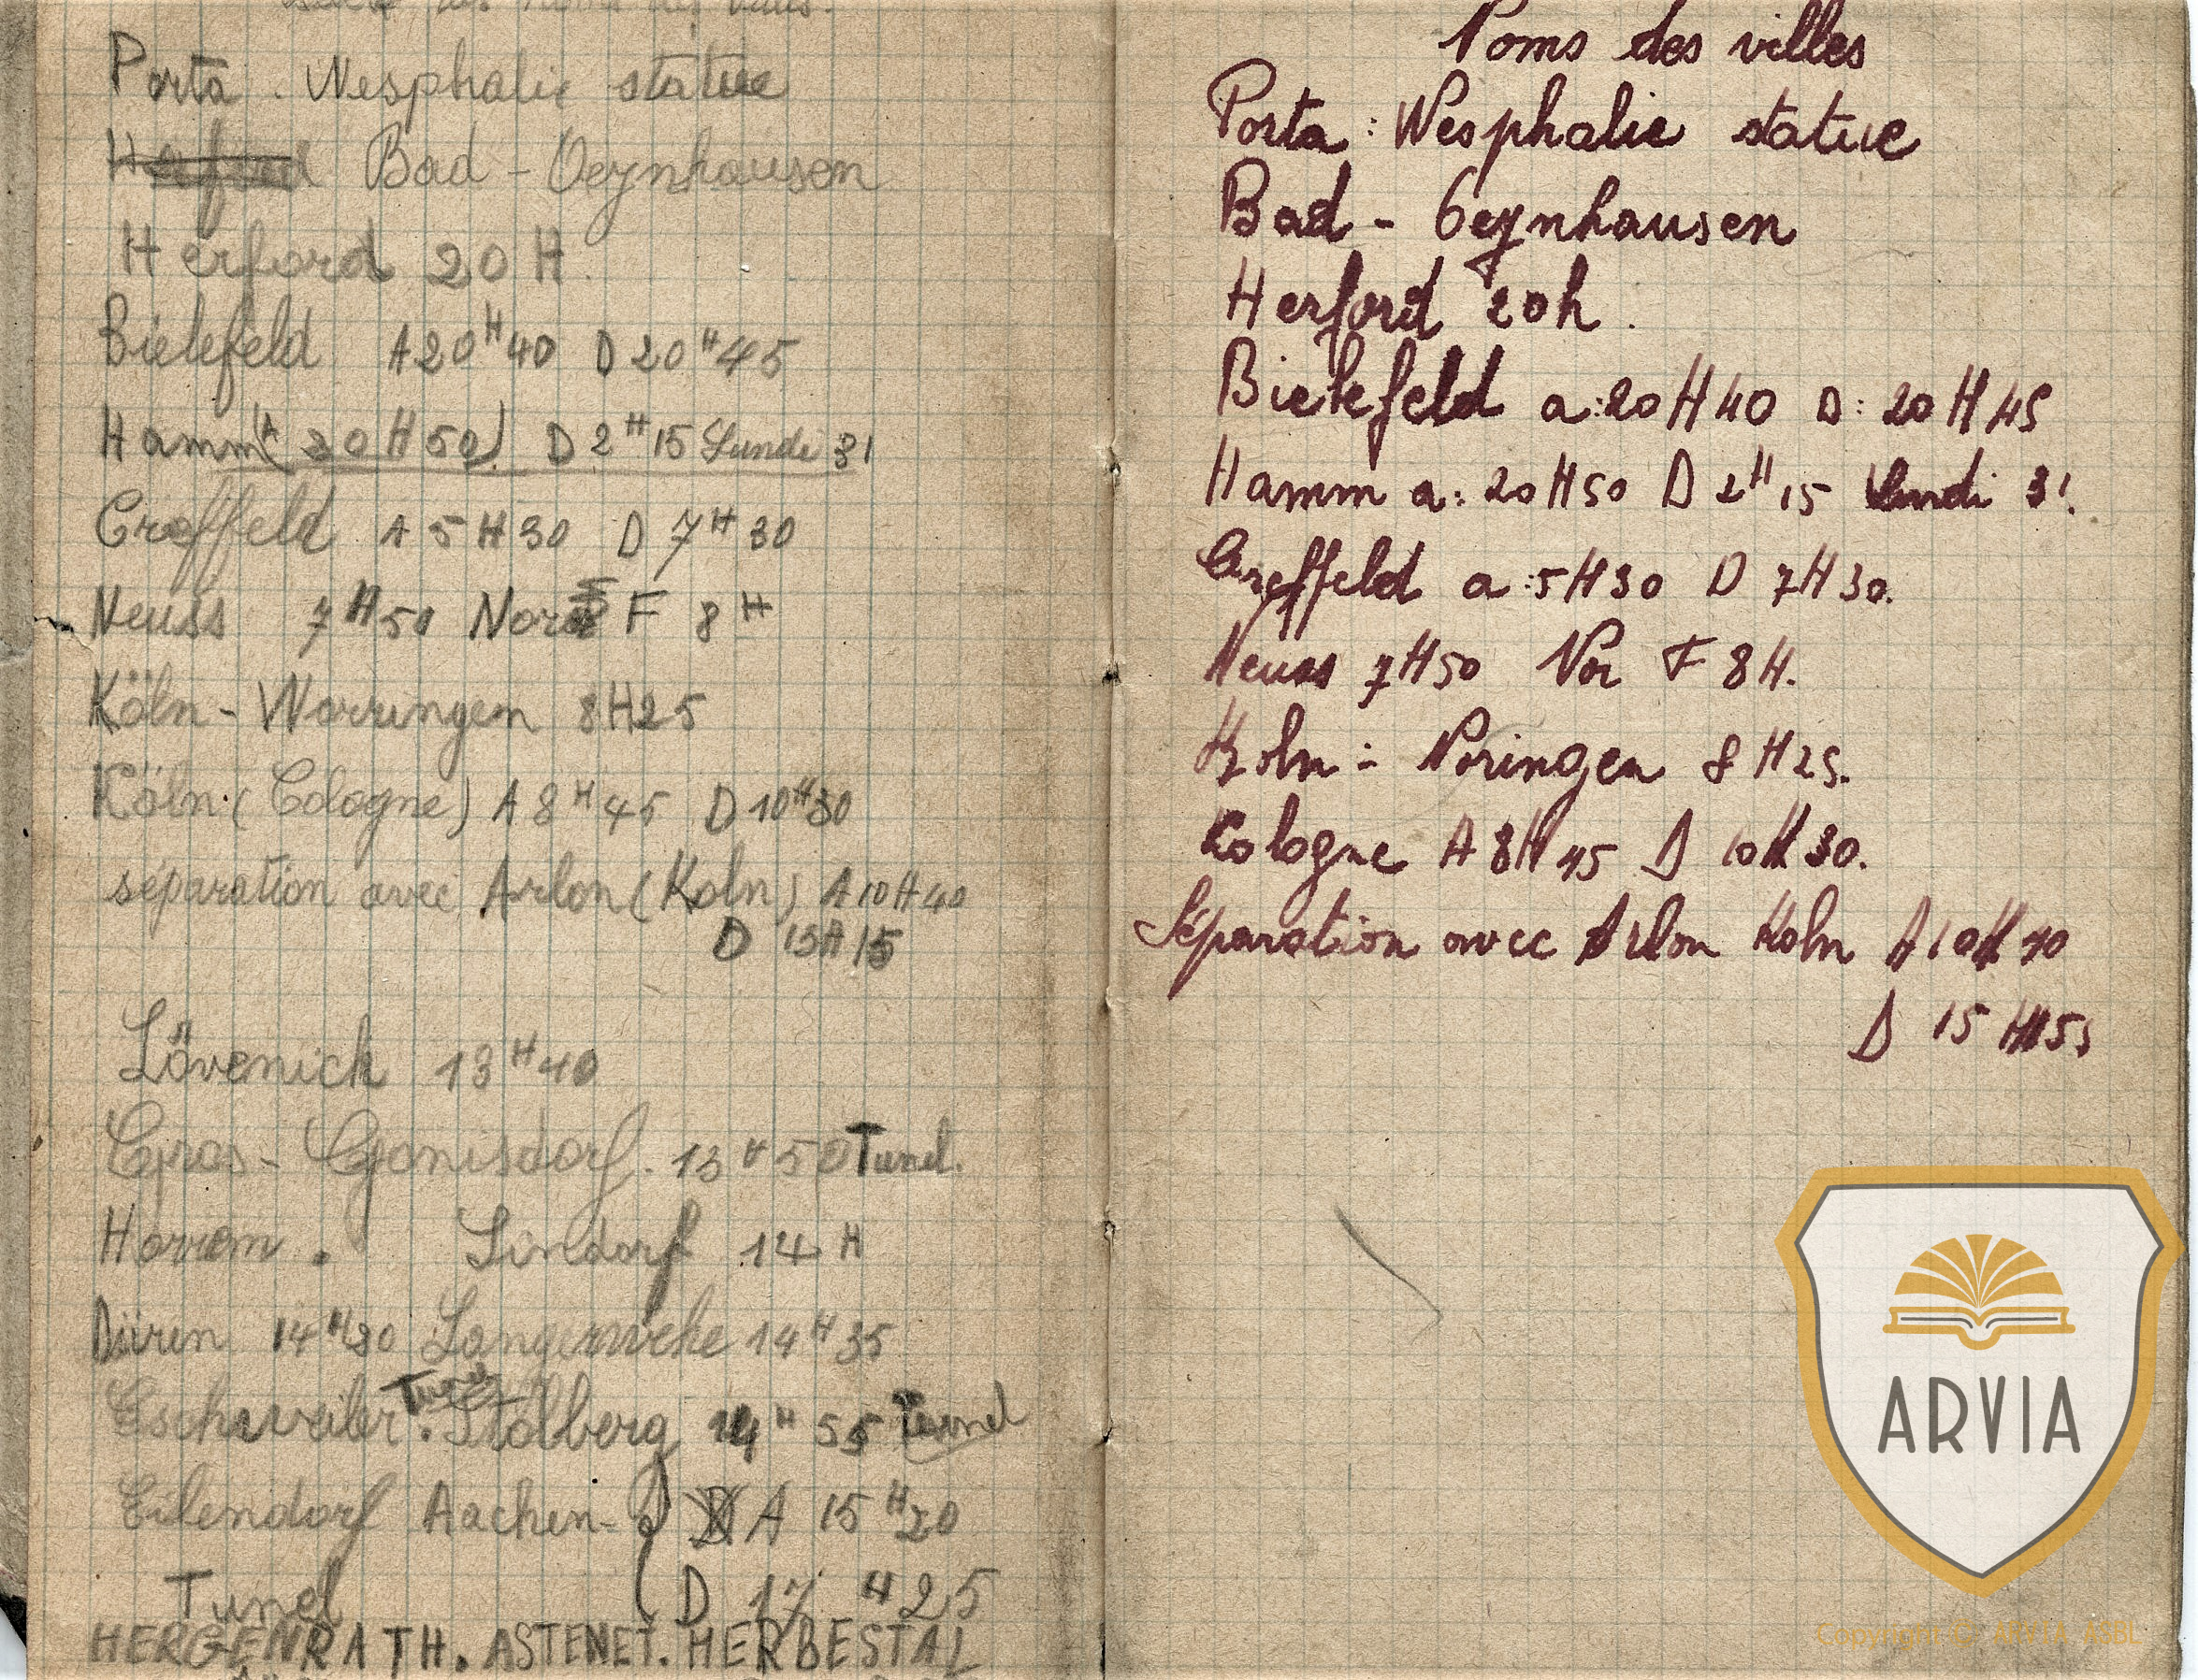 Porta . Wesphalie statue
Herford Bad - Oeynhausen
Herford 20 H.
Bielefeld A 20H40 D 20H45
Hamm (A 20H50) D 2H15 Lundi 31
Creffeld A 5H30 D 7H30
Neuss 7H50 F 8H
Köln - Worringen 8H25
Köln (Cologne) A 8H45 D 10H30
séparation avec Arlon (Koln) A 10H40
D 13H15
Lövenich 13H40
Gros - Gonisdorf. 13H50 Tunel.
Horrem . Sindorf 14H
Düren 14H20 Langerwehe 14H35
Eschweiler. Tunel Stolberg 14H55 Tunel
Eilendorf Aachen - A 15H20
Tunel D 17H25
HERGENRATH. ASTENET. HERBESTAL
Noms des villes
Porta : Wesphalie statue
Bad - Oeynhausen
Herford 20h.
Bielefeld a:20H40 D: 20H45
Hamm a: 20H50 D 2H15 Lundi 31.
Creffeld a:5H30 D 7H30.
Neuss 7H50 Nor F 8H.
Koln - Noringen 8H25.
Cologne A 8H45 D 10H30.
Séparation avec Arlon Koln A 10H40
D 15H55
ARVIA
Copyright © ARVIA ASBL